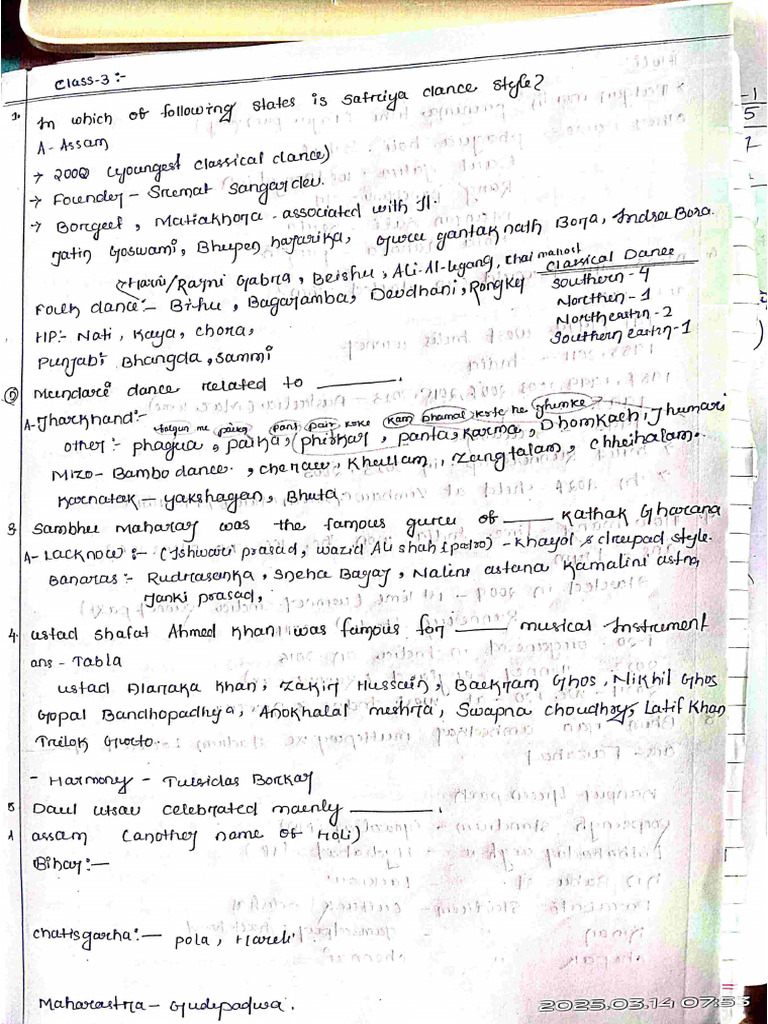 Class-3:-
1. In which of following states is Satriya dance style?
A- Assam
→ 2000 (youngest classical dance)
→ Founder - Sremat Sangardev.
→ Borgeet, Matiakhora - associated with it.
Jatin Goswami, Bhupen hajarika, Guru gantak nath Bora, Indra Bora.
Rajni Gabra, Beishu, Ali-Al-ligang, Chai mahost
Folk dance:- Bihu, Bagarumba, Deodhani, Rongkey
Classical Dance
Southern - 4
Northern - 1
Northeastrn - 2
Southern eastrn - 1
HP:- Nati, Kaya, chora,
Punjab: Bhangda, Sammi
2 Mundari dance related to ______.
A- Jharkhand:- falgun me paika pant pair koke kam dhamal karte he jhumke
other :- phagua, paika, phirkal, panta, Karma, Dhomkach, Jhumari
Mizo - Bambo dance, cheraw, Khullam, Zangtalam, Chheihalam.
Karnatak - yakshagan, Bhuta
3. Sambhu Maharaj was the famous guru of ____ Kathak Gharana
A- Lacknow :- (Ishwari prasad, wazid Ali shah (patro) - Khayol & drupad style.
Banaras :- Rudrasenka, Sneha Bagay, Nalini astana Kamalini astna,
Janki prasad,
4. Ustad Shafat Ahmed Khan was famous for ____ musical Instrument
ans - Tabla
Ustad Alaraka Khan, Zakir Hussain, Baekram Ghos, Nikhil Ghos
Gopal Bandhopadhya, Anokhalal meshra, Swapna choudhry, Latif Khan
Trilok Gurto.
- Harmony - Tulsidas Borkar
5 Daul utsav celebrated mainly ______.
A assam (another name of Holi)
Bihar:-
Chatisgarha:- Pola, Hareli
Maharastra - Gudepadwa.
2025.03.14 07:53